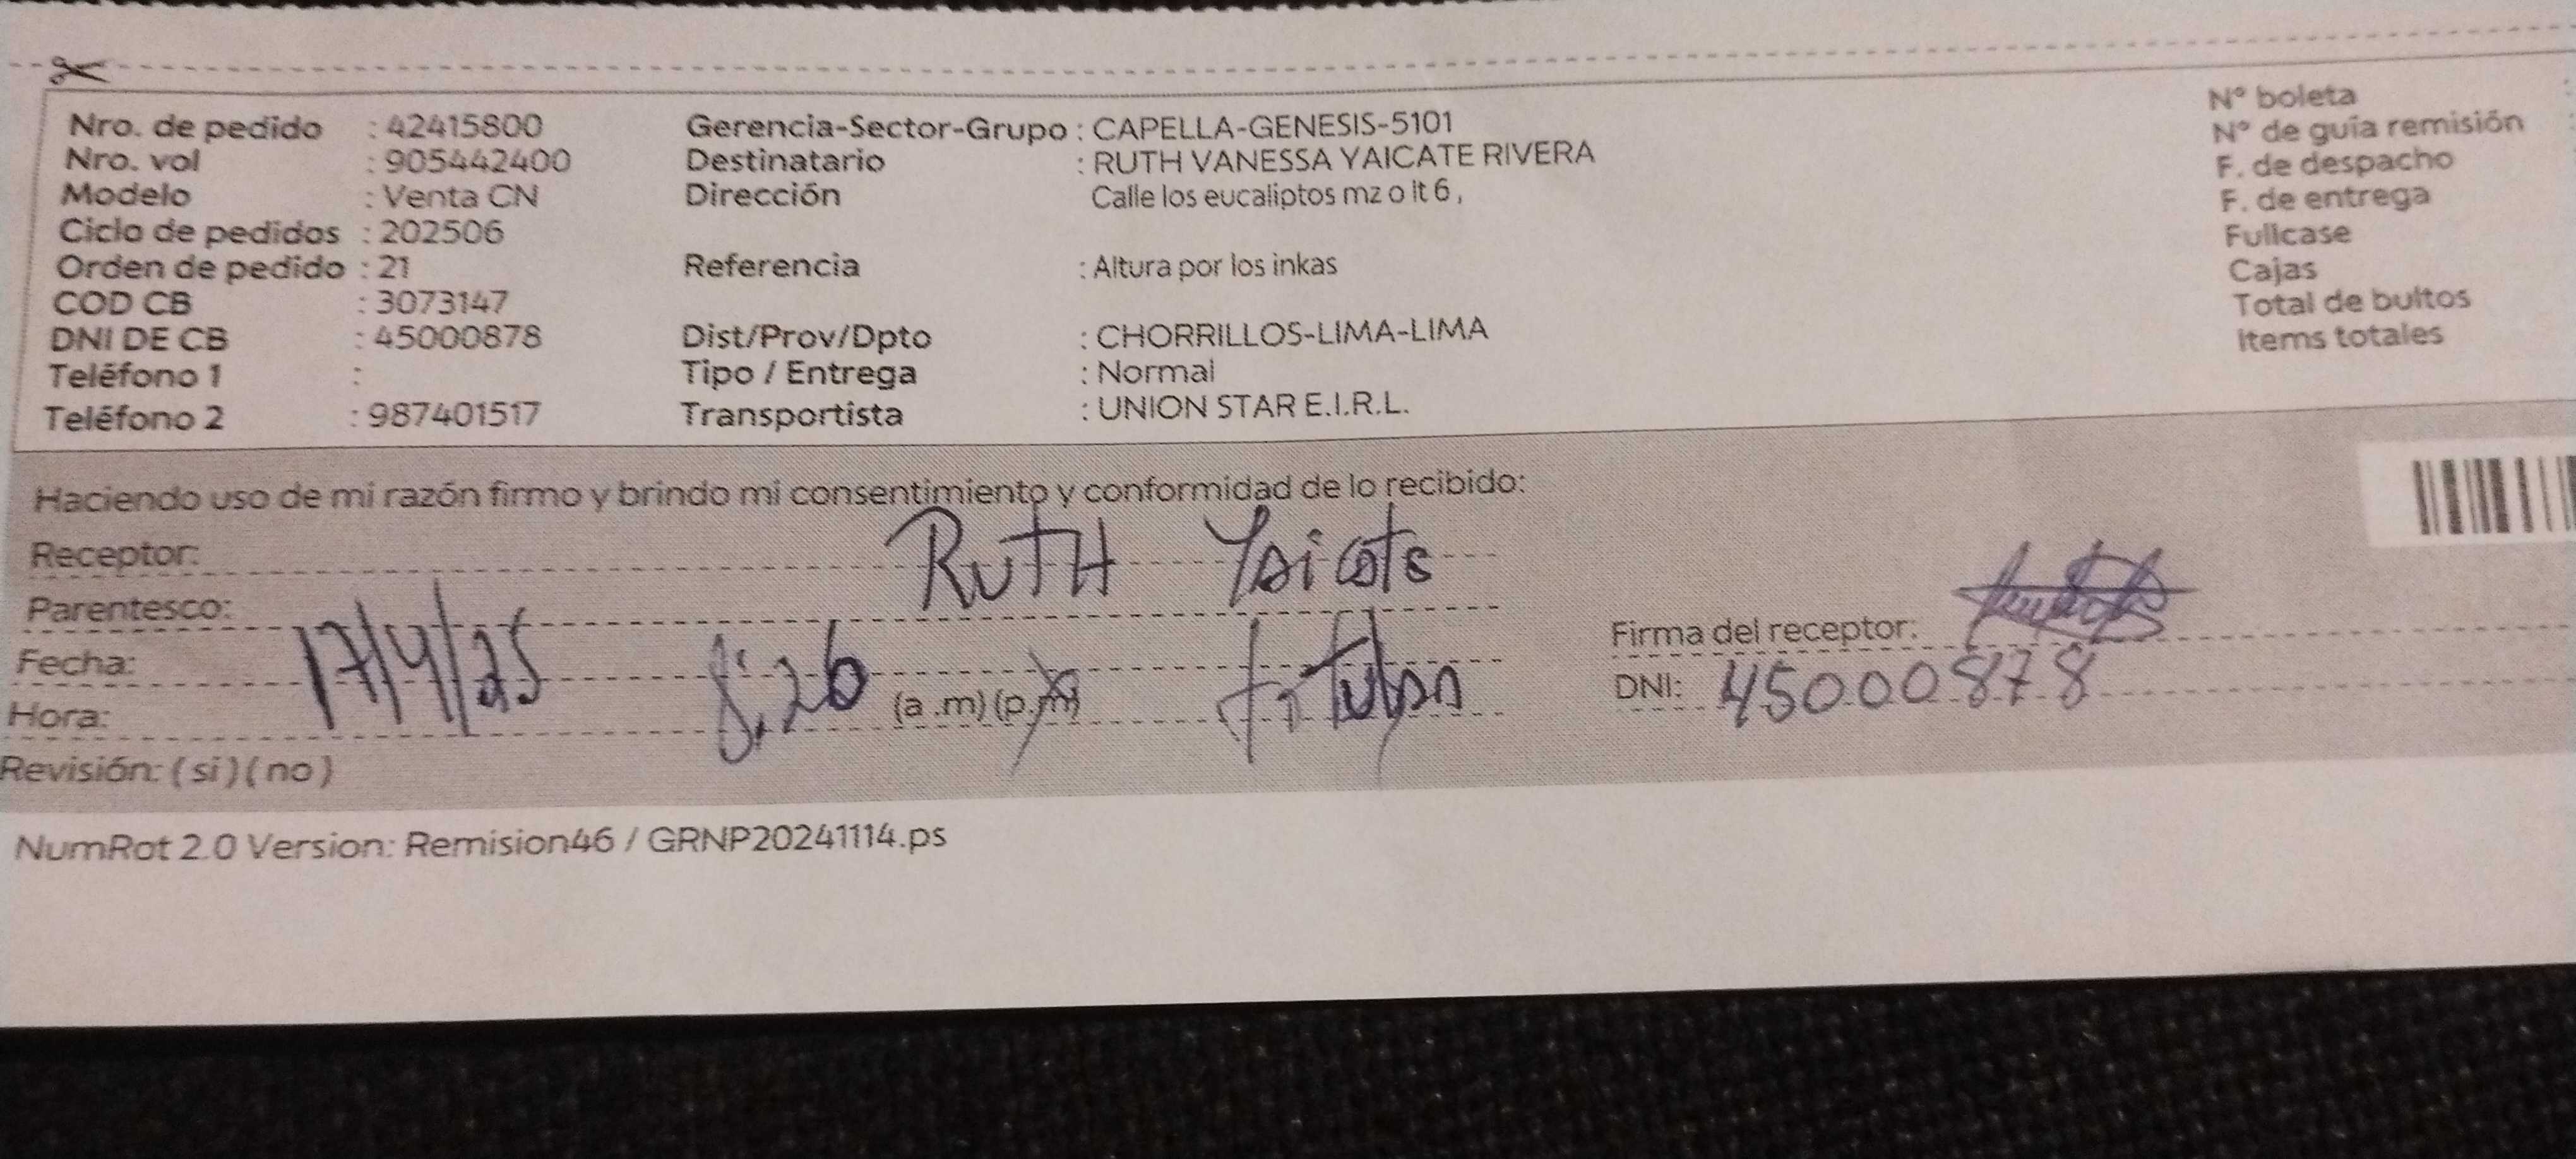 Nro. de pedido : 42415800
Nro. vol : 905442400
Modelo : Venta CN
Ciclo de pedidos : 202506
Orden de pedido : 21
COD CB : 3073147
DNI DE CB : 45000878
Teléfono 1 :
Teléfono 2 : 987401517
Gerencia-Sector-Grupo : CAPELLA-GENESIS-5101
Destinatario : RUTH VANESSA YAICATE RIVERA
Dirección Calle los eucaliptos mz o lt 6 ,
Referencia : Altura por los inkas
Dist/Prov/Dpto : CHORRILLOS-LIMA-LIMA
Tipo / Entrega : Normal
Transportista : UNION STAR E.I.R.L.
N° boleta
N° de guía remisión
F. de despacho
F. de entrega
Fullcase
Cajas
Total de bultos
Items totales
Haciendo uso de mi razón firmo y brindo mi consentimiento y conformidad de lo recibido:
Receptor: RUTH Yaicate
Parentesco:
Fecha: 17/4/25
Hora: 8:26 (a .m) (p.m)
Revisión: ( si ) ( no )
Firma del receptor:
DNI: 45000878
NumRot 2.0 Version: Remision46 / GRNP20241114.ps